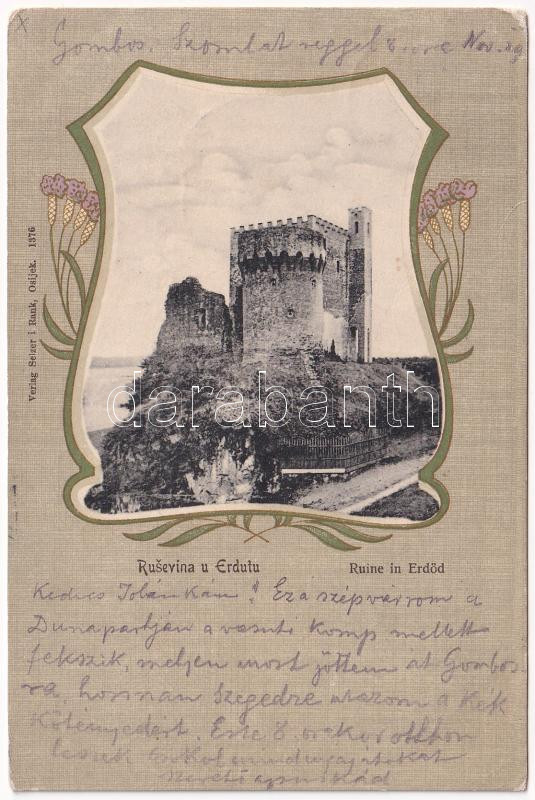 Gombos, Szombat reggel 8. óra Nov. 29
Verlag Selzer i Rank, Osijek. 1376
darabanth
Ruševina u Erdutu
Ruine in Erdöd
Kedves Ez a szép várrom a
Dunapartján a vasuti komp mellett
fekszik, melyen most jöttem át Gombos-
ra, honnan Szegedre utazom a Kék
Kötényedért. Este 8. orakor otthon
leszek mindnyájatokat
szerető apuskád